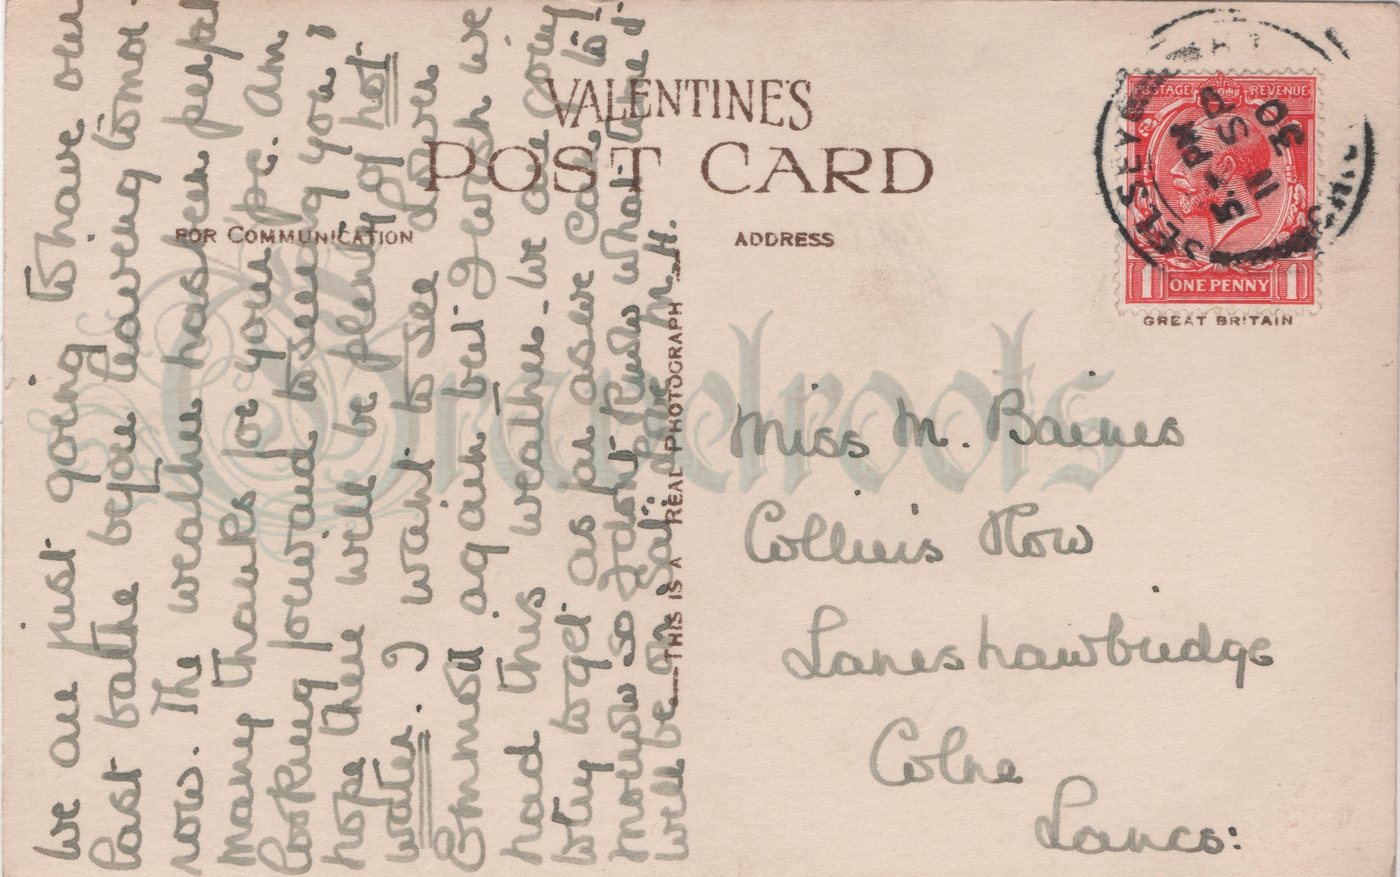 VALENTINE'S
POST CARD
FOR COMMUNICATION
ADDRESS
SELSEY
5 - PM
11 SP
30
POSTAGE REVENUE
1 ONE PENNY 1
GREAT BRITAIN
THIS IS A REAL PHOTOGRAPH
Gravelroots
We are just going to have our
last bathe before leaving tomor-
row. The weather has been
many thanks for your pc. Am
looking forward to seeing you,
hope there will be plenty of hot
water. I want to see dover
again but I wish we
had this weather. We are
to get as far as we can to
so I don't know what time it
will be on Sat. M. H.
Miss M. Baines
Row
Laneshawbridge
Colne
Lancs: